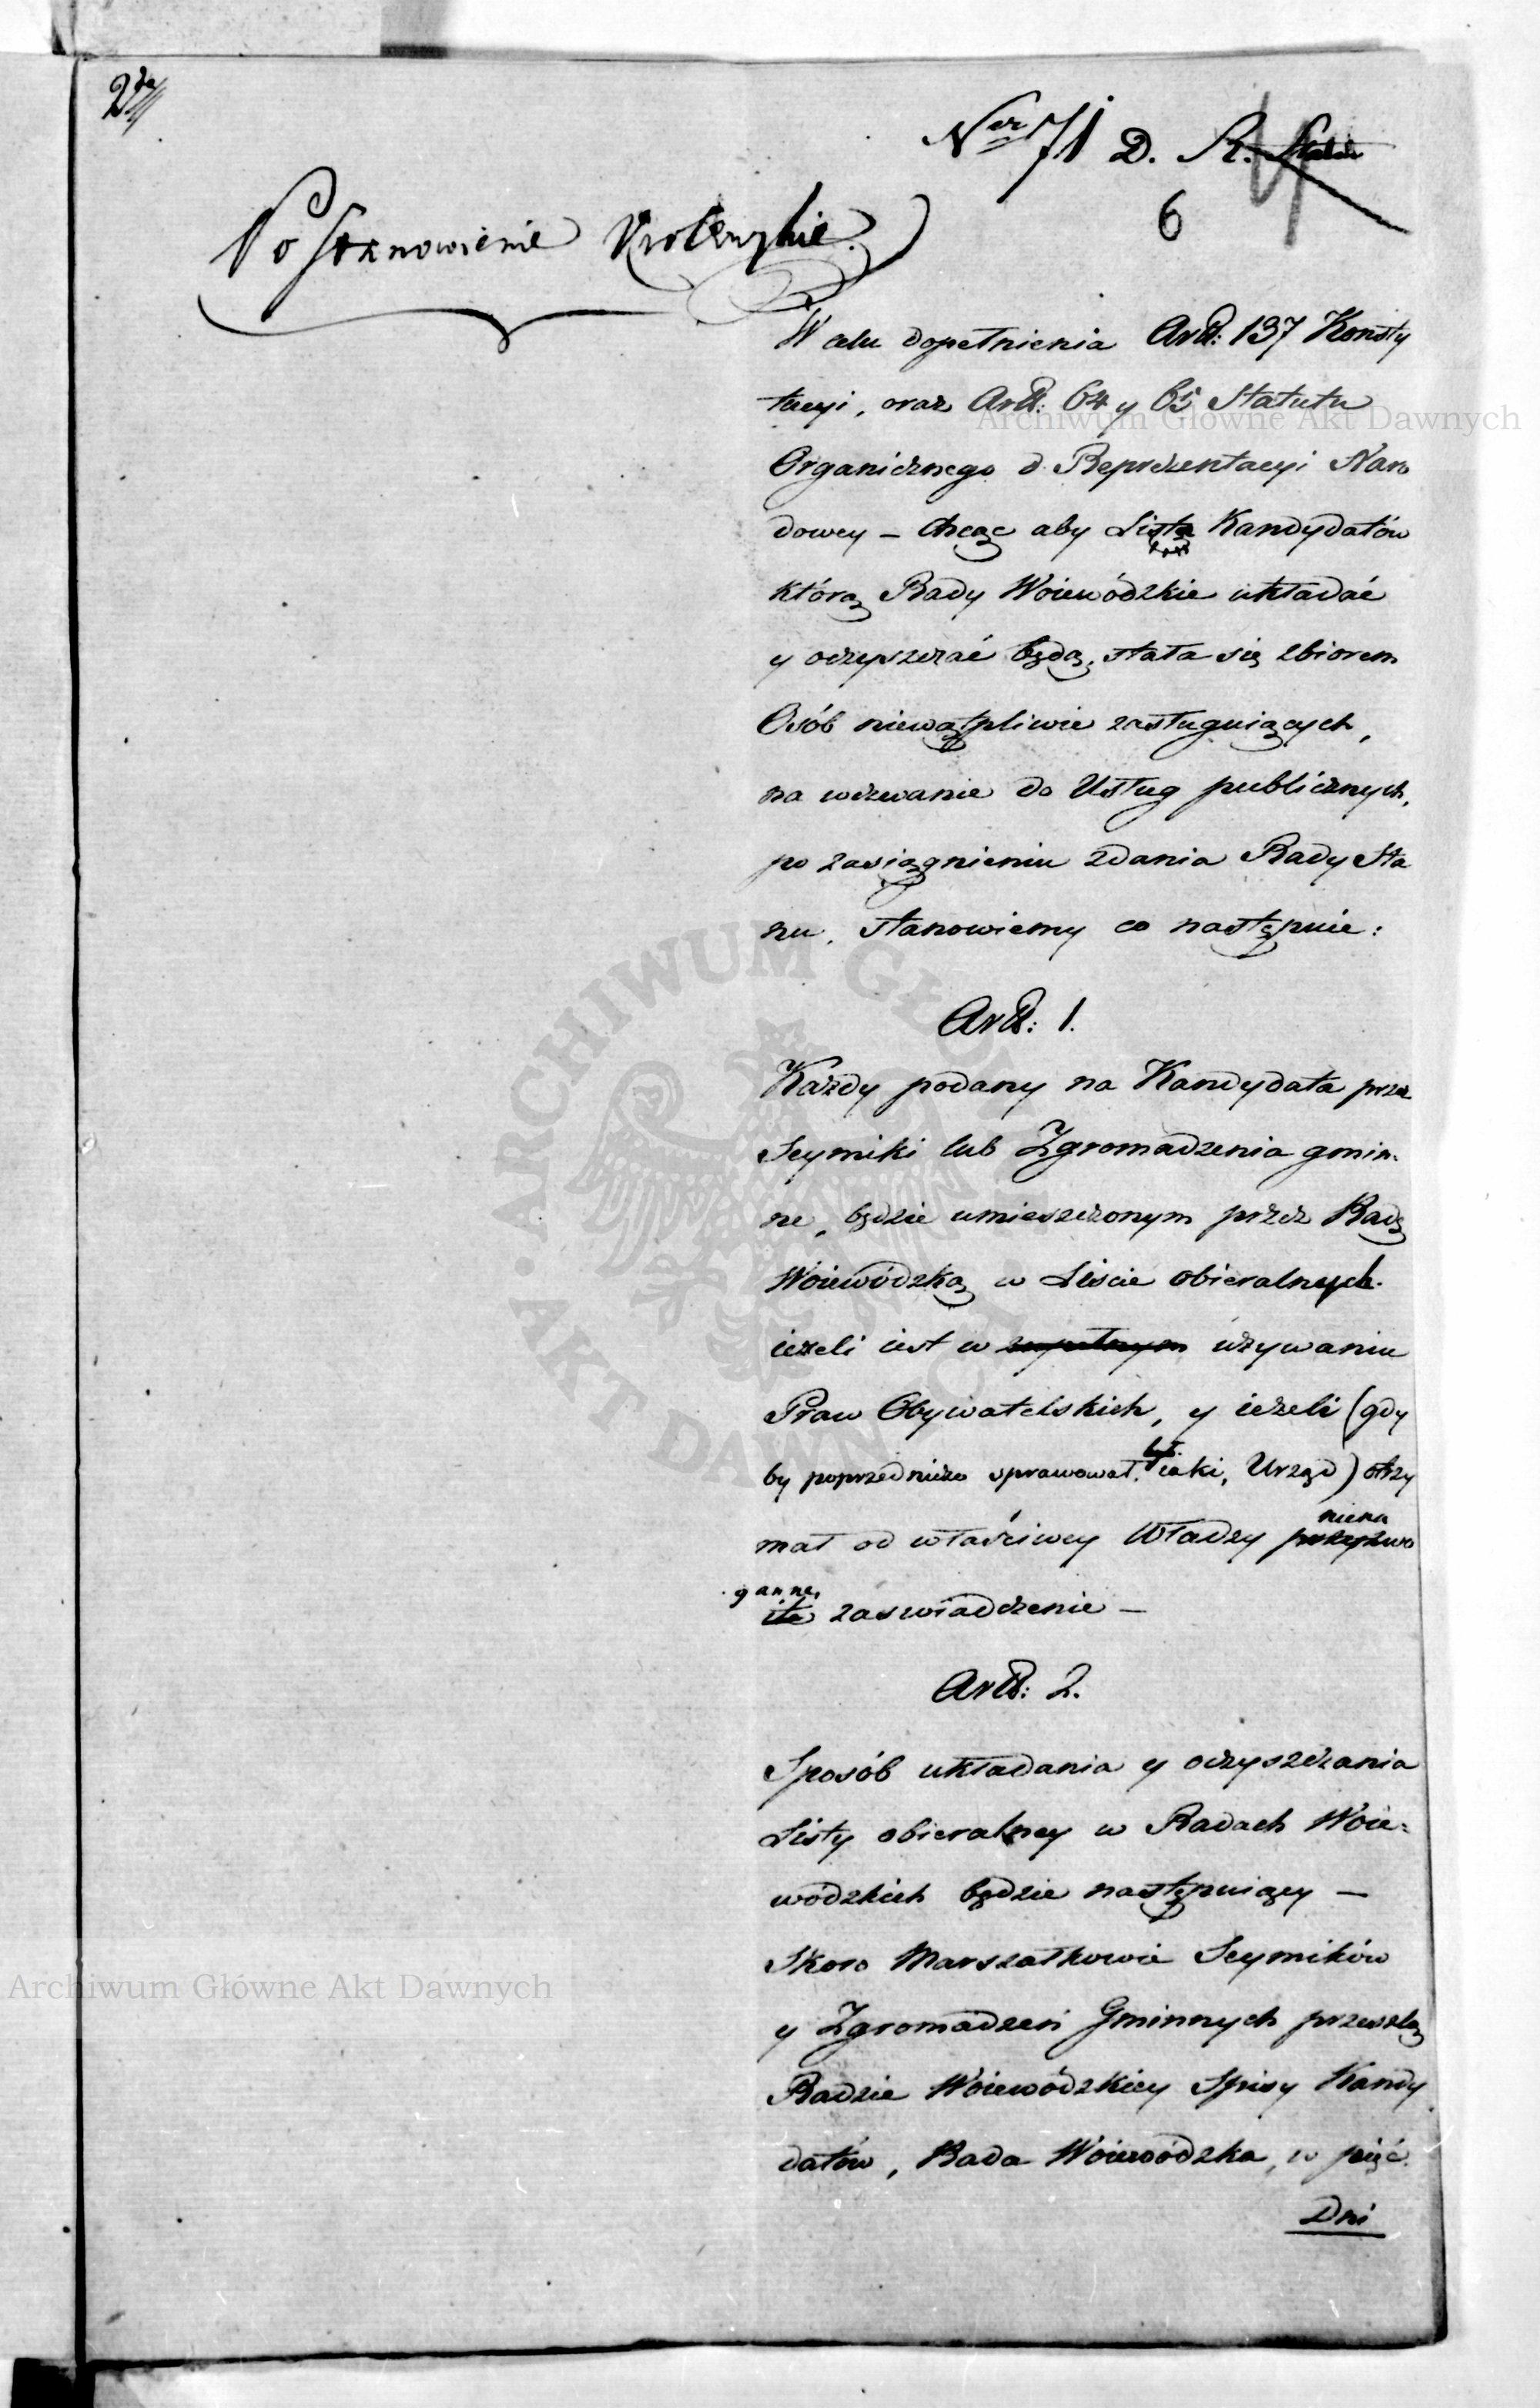 2da
Nro 71 D. R. Stanu
6
Postanowienie Krolewskie.
W celu dopełnienia Artt: 137 Konsty
tucyi, oraz Artt: 64 y 65 Statutu
Organicznego o Reprezentacyi Naro
dowey — Chcąc aby Lista Kandydatów
którą Rady Woiewódzkie układać
y oczyszczać będą, stała się zbiorem
Osób niewątpliwie zasługuiących,
na wezwanie do Usług publicznych,
po zasiągnieniu zdania Rady Sta
nu, stanowiemy co następuie:
Artt: 1.
Każdy podany na Kandydata przez
Seymiki lub Zgromadzenia gmin-
ne, będzie umieszczonym przez Radę
Woiewódzką w Liście obieralnych.
ieżeli iest w zupełnym używaniu
Praw Obywatelskich, y ieżeli (gdy
był.
by poprzedniczo sprawował, iaki, Urząd) otrzy
niena
mał od właściwey Władzy przyzwo
ganne,
ite zaswiadczenie —
Artt: 2.
Sposób układania y oczyszczania
Listy obieralney w Radach Woie=
wódzkich będzie następuiący —
Skoro Marszałkowie Seymików
y Zgromadzeń Gminnych prześlą
Radzie Woiewódzkiey Spisy Kandy
datów, Rada Woiewódzka, w pięć
Dni
Archiwum Główne Akt Dawnych
Archiwum Główne Akt Dawnych
ARCHIWUM GŁÓWNE AKT DAWNYCH